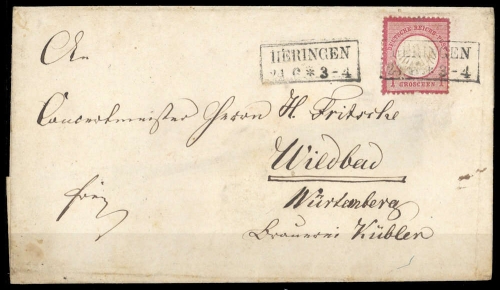 HERINGEN
21 6 * 3-4
DEUTSCHE REICHS-POST
1 GROSCHEN 1
An
Concertmeister Herrn H. Fritsche
Wildbad
frei
Würtemberg
Brauerei Kübler